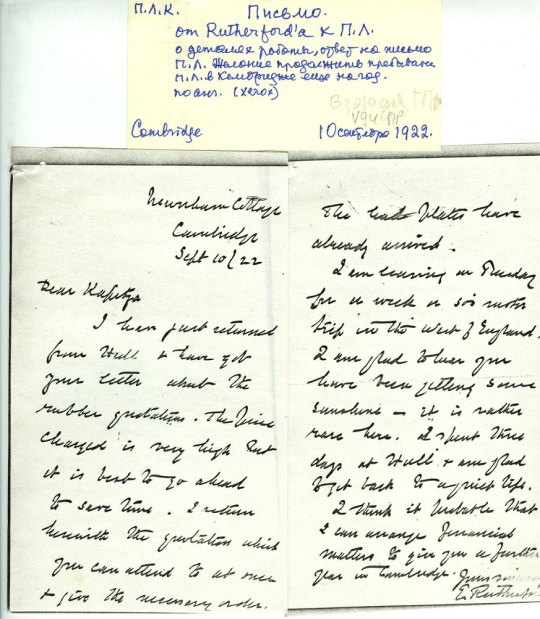 П.Л.К. Письмо.
от Rutherford'а к П.Л.
о деталях работы, ответ на письмо
П.Л. Желание продолжить пребывание
П.Л. в Кембридже ещё на год.
по англ. (xerox)
Cambridge 10 сентября 1922.
Newnham Cottage
Cambridge
Sept 10/22
Dear Kapitza
I have just returned
from Hull & have got
your letter about the
rubber quotation. The price
charged is very high but
it is best to go ahead
to save time. I return
herewith the quotation which
you can attend to at once
& give the necessary order.
The lead plates have
already arrived.
I am leaving on Tuesday
for a week or so's motor
trip in the West of England.
I am glad to hear you
have been getting some
sunshine — it is rather
rare here. I spent three
days at Hull & am glad
to get back to a quiet life.
I think it probable that
I can arrange financial
matters to give you a further
year in Cambridge. Yours sincerely
E. Rutherford